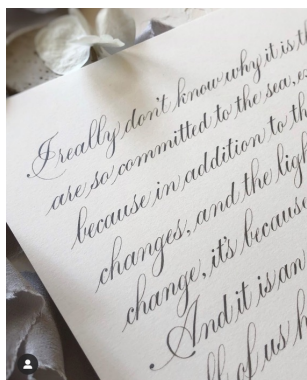 I really don't know why it is
are so committed to the sea,
because in addition to
changes, and the
change, it's because
And it is an
of us